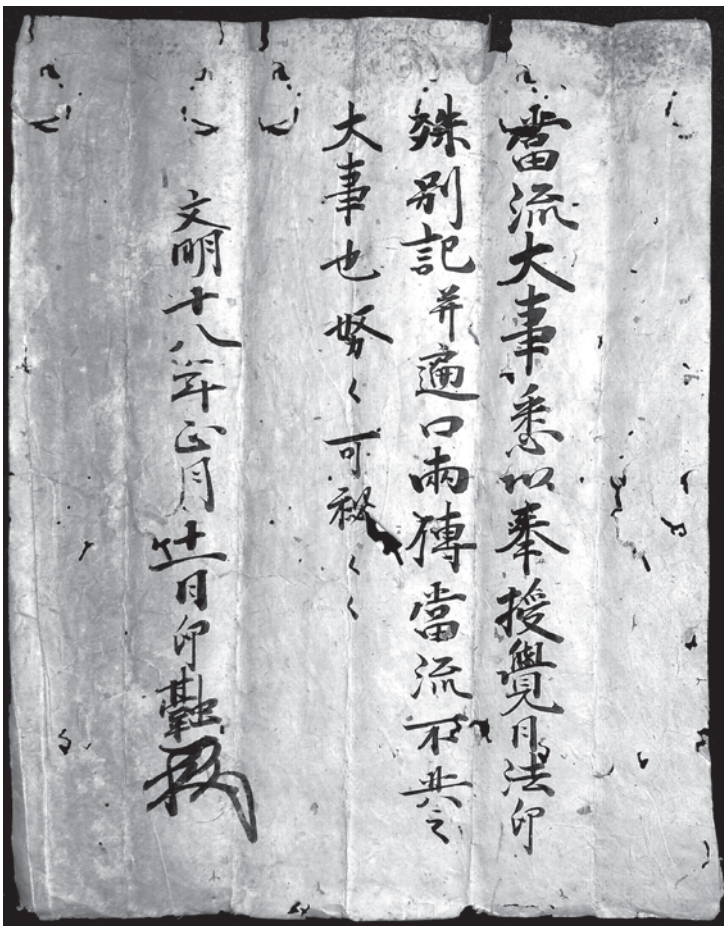 當流大事悉以奉授覺日法印
殊別記并遍口兩傳當流不共之
大事也努々可秘々々
文明十八年正月廿一日印融